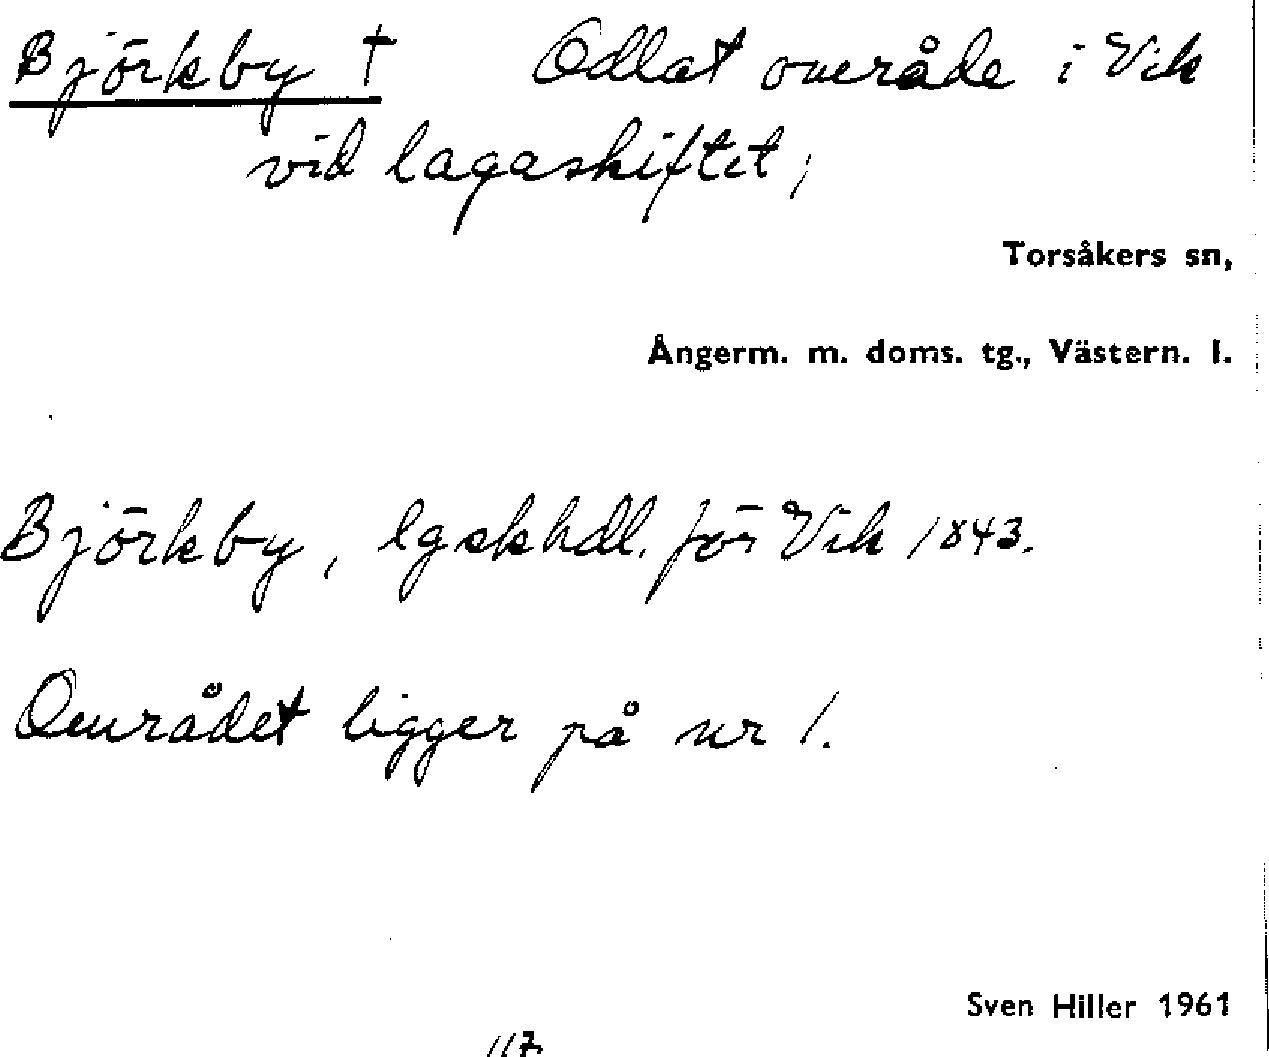 Björkby † Odlat område i Vik
vid lagaskiftet;
Torsåkers sn,
Ångerm. m. doms. tg., Västern. l.
Björkby, lgskhdl. för Vik 1843.
Området ligger på nr 1.
Sven Hiller 1961
117.